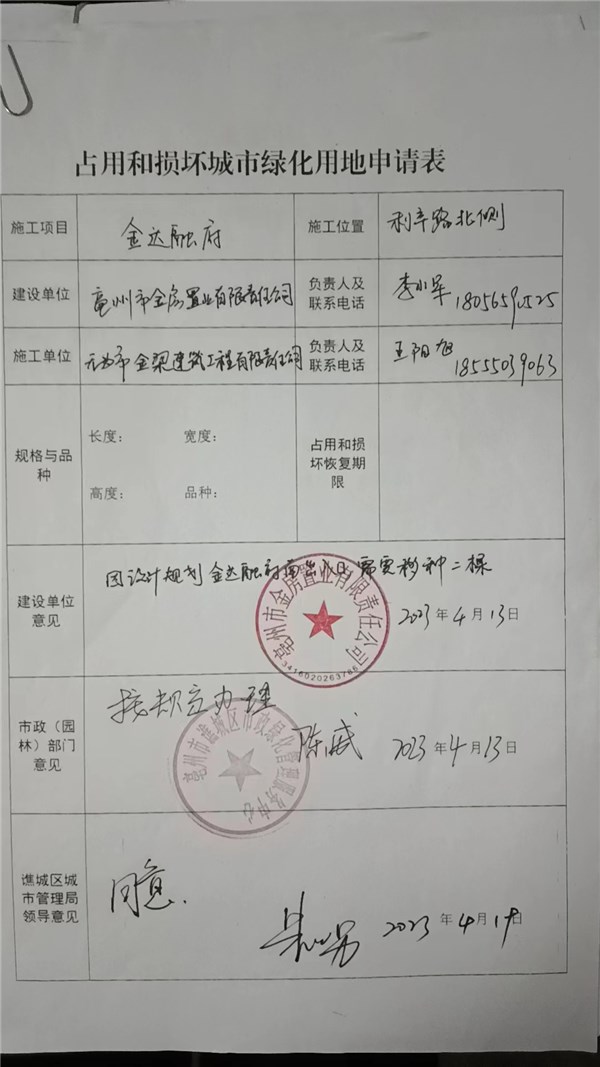 占用和损坏城市绿化用地申请表
施工项目 金达融府 施工位置 利辛路北侧
建设单位 亳州市金房置业有限责任公司 负责人及联系电话 李小军
施工单位 无为市金梁建筑工程有限责任公司 负责人及联系电话 王阳旭 18555039063
规格与品种 长度： 宽度： 占用和损坏恢复期限
高度： 品种：
建设单位意见 因设计规划金达融府南出入口需要移种二棵
亳州市金房置业有限责任公司
3416020263766
2023年4月13日
市政（园林）部门意见 按规定办理
亳州市谯城区市政绿化管理服务中心
陈威 2023年4月13日
谯城区城市管理局领导意见 同意.
2023年4月 日